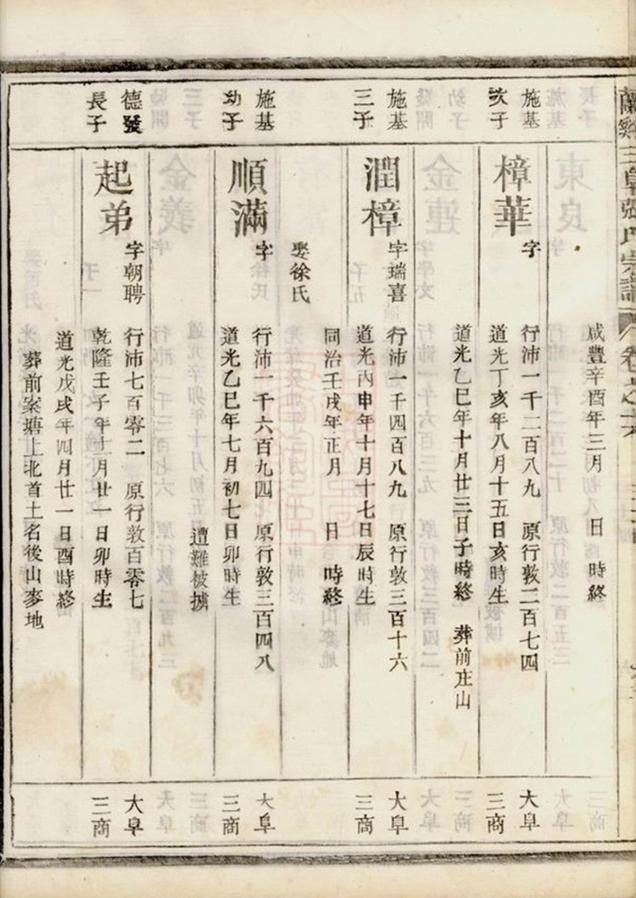 咸豐辛酉年三月 日 時終
施基
次子
樟華
字 行沛一千二百八九 原行敦二百七四
道光丁亥年八月十五日亥時生
道光乙巳年十月廿三日子時終 葬前庄山
大阜
三商
施基
三子
潤樟
字瑞喜 行沛一千四百八九 原行敦三百十六
道光丙申年十月十七日辰時生
同治壬戌年正月 日 時終
娶徐氏
大阜
三商
施基
幼子
順滿
字 行沛一千六百九四 原行敦三百四八
道光乙巳年七月初七日卯時生
遭難被擄
大阜
三商
德發
長子
起弟
字朝聘 行沛七百零二 原行敦百零七
乾隆壬子年十一月廿一日卯時生
道光戊戌年四月廿一日酉時終
葬前案塘上北首土名後山麥地
大阜
三商